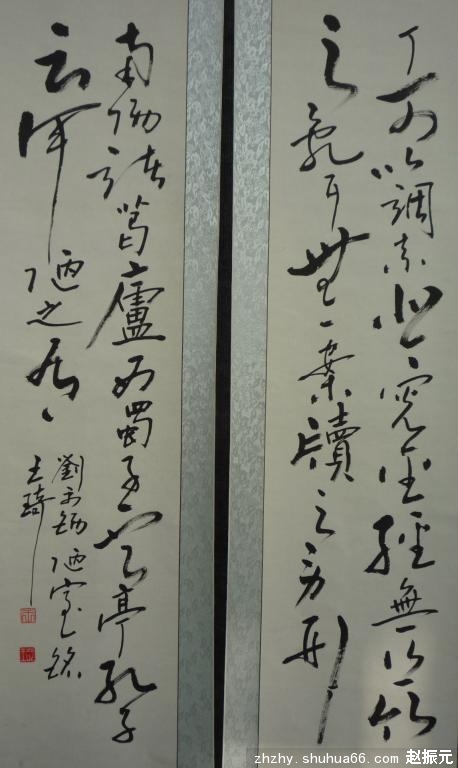 丁可以調素琴閱金經無絲竹
之亂耳無案牘之勞形
南陽諸葛廬西蜀子雲亭孔子
云何陋之有
劉禹錫陋室銘
王琦
zhzhy.shuhua66.com 赵振元